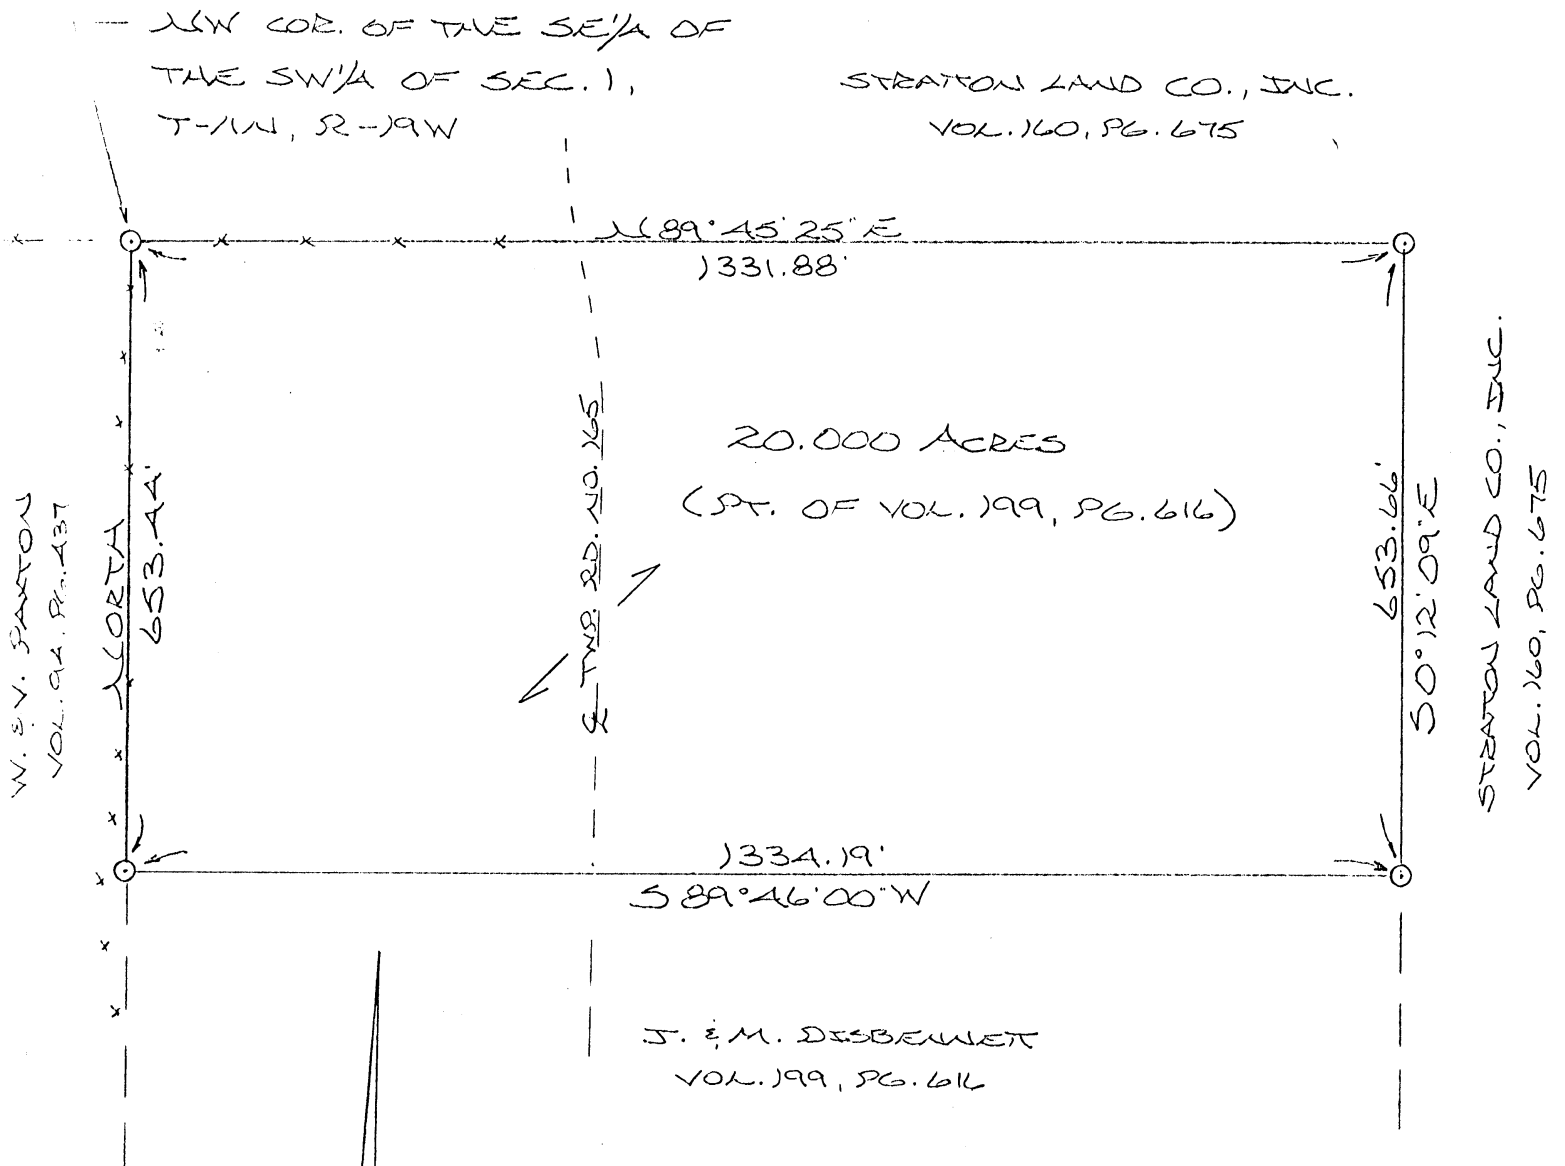 NW COR. OF THE SE 1/4 OF
THE SW 1/4 OF SEC. 1,
T-11N, R-19W
STRATTON LAND CO., INC.
VOL. 160, PG. 675
N 89° 45' 25" E
1331.88'
W. & V. PAXTON
VOL. 94. PG. 437
NORTH
653.44'
℄ TWP. RD. NO. 165
20.000 ACRES
(PT. OF VOL. 199, PG. 616)
653.66'
S 0° 12' 09" E
STRATTON LAND CO., INC.
VOL. 160, PG. 675
1334.19'
S 89° 46' 00" W
J. & M. DISBENNETT
VOL. 199, PG. 616